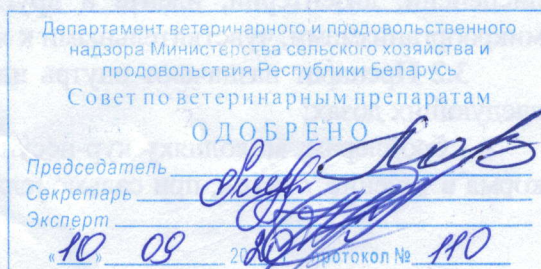 Департамент ветеринарного и продовольственного
надзора Министерства сельского хозяйства и
продовольствия Республики Беларусь
Совет по ветеринарным препаратам
ОДОБРЕНО
Председатель
Секретарь
Эксперт
«10» 09 20 протокол № 110